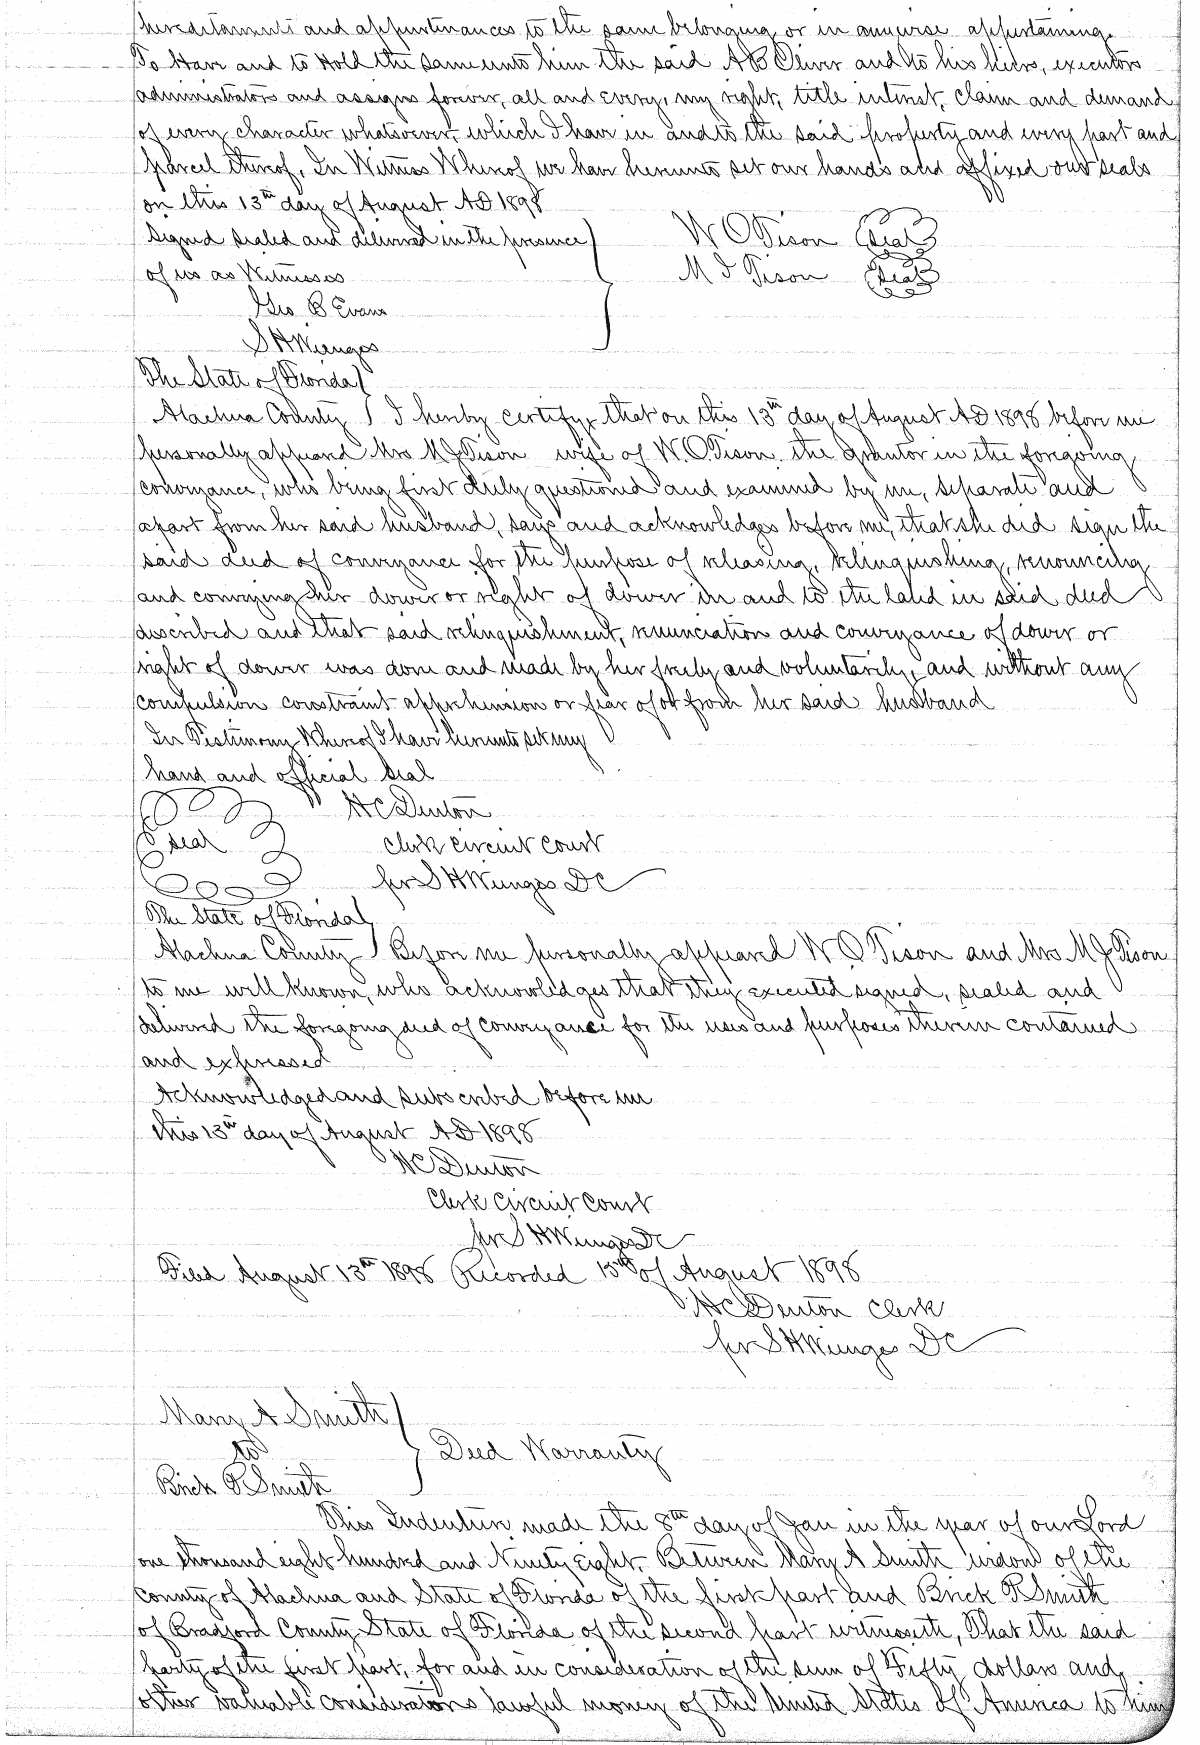 hereditaments and appurtinances to the same belonging or in anywise appertaining.
To Have and to Hold the same unto him the said A B Oliver and to his heirs, executors
administrators and assigns forever, all and every, my right, title interest, claim and demand
of every character whatsoever, which I have in and to the said property and every part and
parcel thereof, In Witness Whereof we have hereunto set our hands and affixed our seals
on this 13th day of August AD 1898
Signed sealed and delivered in the presence
of us as Witnesses
W O Tison Seal
M J Tison Seal
Geo B Evans
S H Wienges
The State of Florida
Alachua County I hereby certify, that on this 13th day of August AD 1898 before me
personally appeared Mrs M J Tison wife of W. O. Tison, the grantor in the foregoing
conveyance, who being first duly questioned and examined by me, separate and
apart from her said husband, says and acknowledges before me, that she did sign the
said deed of conveyance for the purpose of releasing, relinquishing, renouncing
and conveying her dower or right of dower in and to the land in said deed
described and that said relinquishment, renunciation and conveyance of dower or
right of dower was done and made by her freely and voluntarily, and without any
compulsion constraint apprehension or fear of or from her said husband
In Testimony Whereof I have hereunto set my
hand and official seal
H C Denton
Seal Clerk Circuit Court
per S H Wienges DC
The State of Florida
Alachua County Before me personally appeared W O Tison and Mrs M J Tison
to me well known, who acknowledges that they executed signed, sealed and
delivered the foregoing deed of conveyance for the uses and purposes therein contained
and expressed
Acknowledged and subscribed before me
this 13th day of August AD 1898
H C Denton
Clerk Circuit Court
per S H Wienges DC
Filed August 13th 1898 Recorded 15th of August 1898
H C Denton Clerk
per S H Wienges DC
Mary A Smith
to Deed Warranty
Brick P Smith
This Indenture, made the 8th day of Jan in the year of our Lord
one thousand eight hundred and Ninety Eight, Between Mary A Smith widow of the
County of Alachua and State of Florida of the first part and Brick P Smith
of Bradford County State of Florida of the second part witnesseth, That the said
party of the first part, for and in consideration of the sum of Fifty dollars and
other valuable considerations lawful money of the United States of America to him